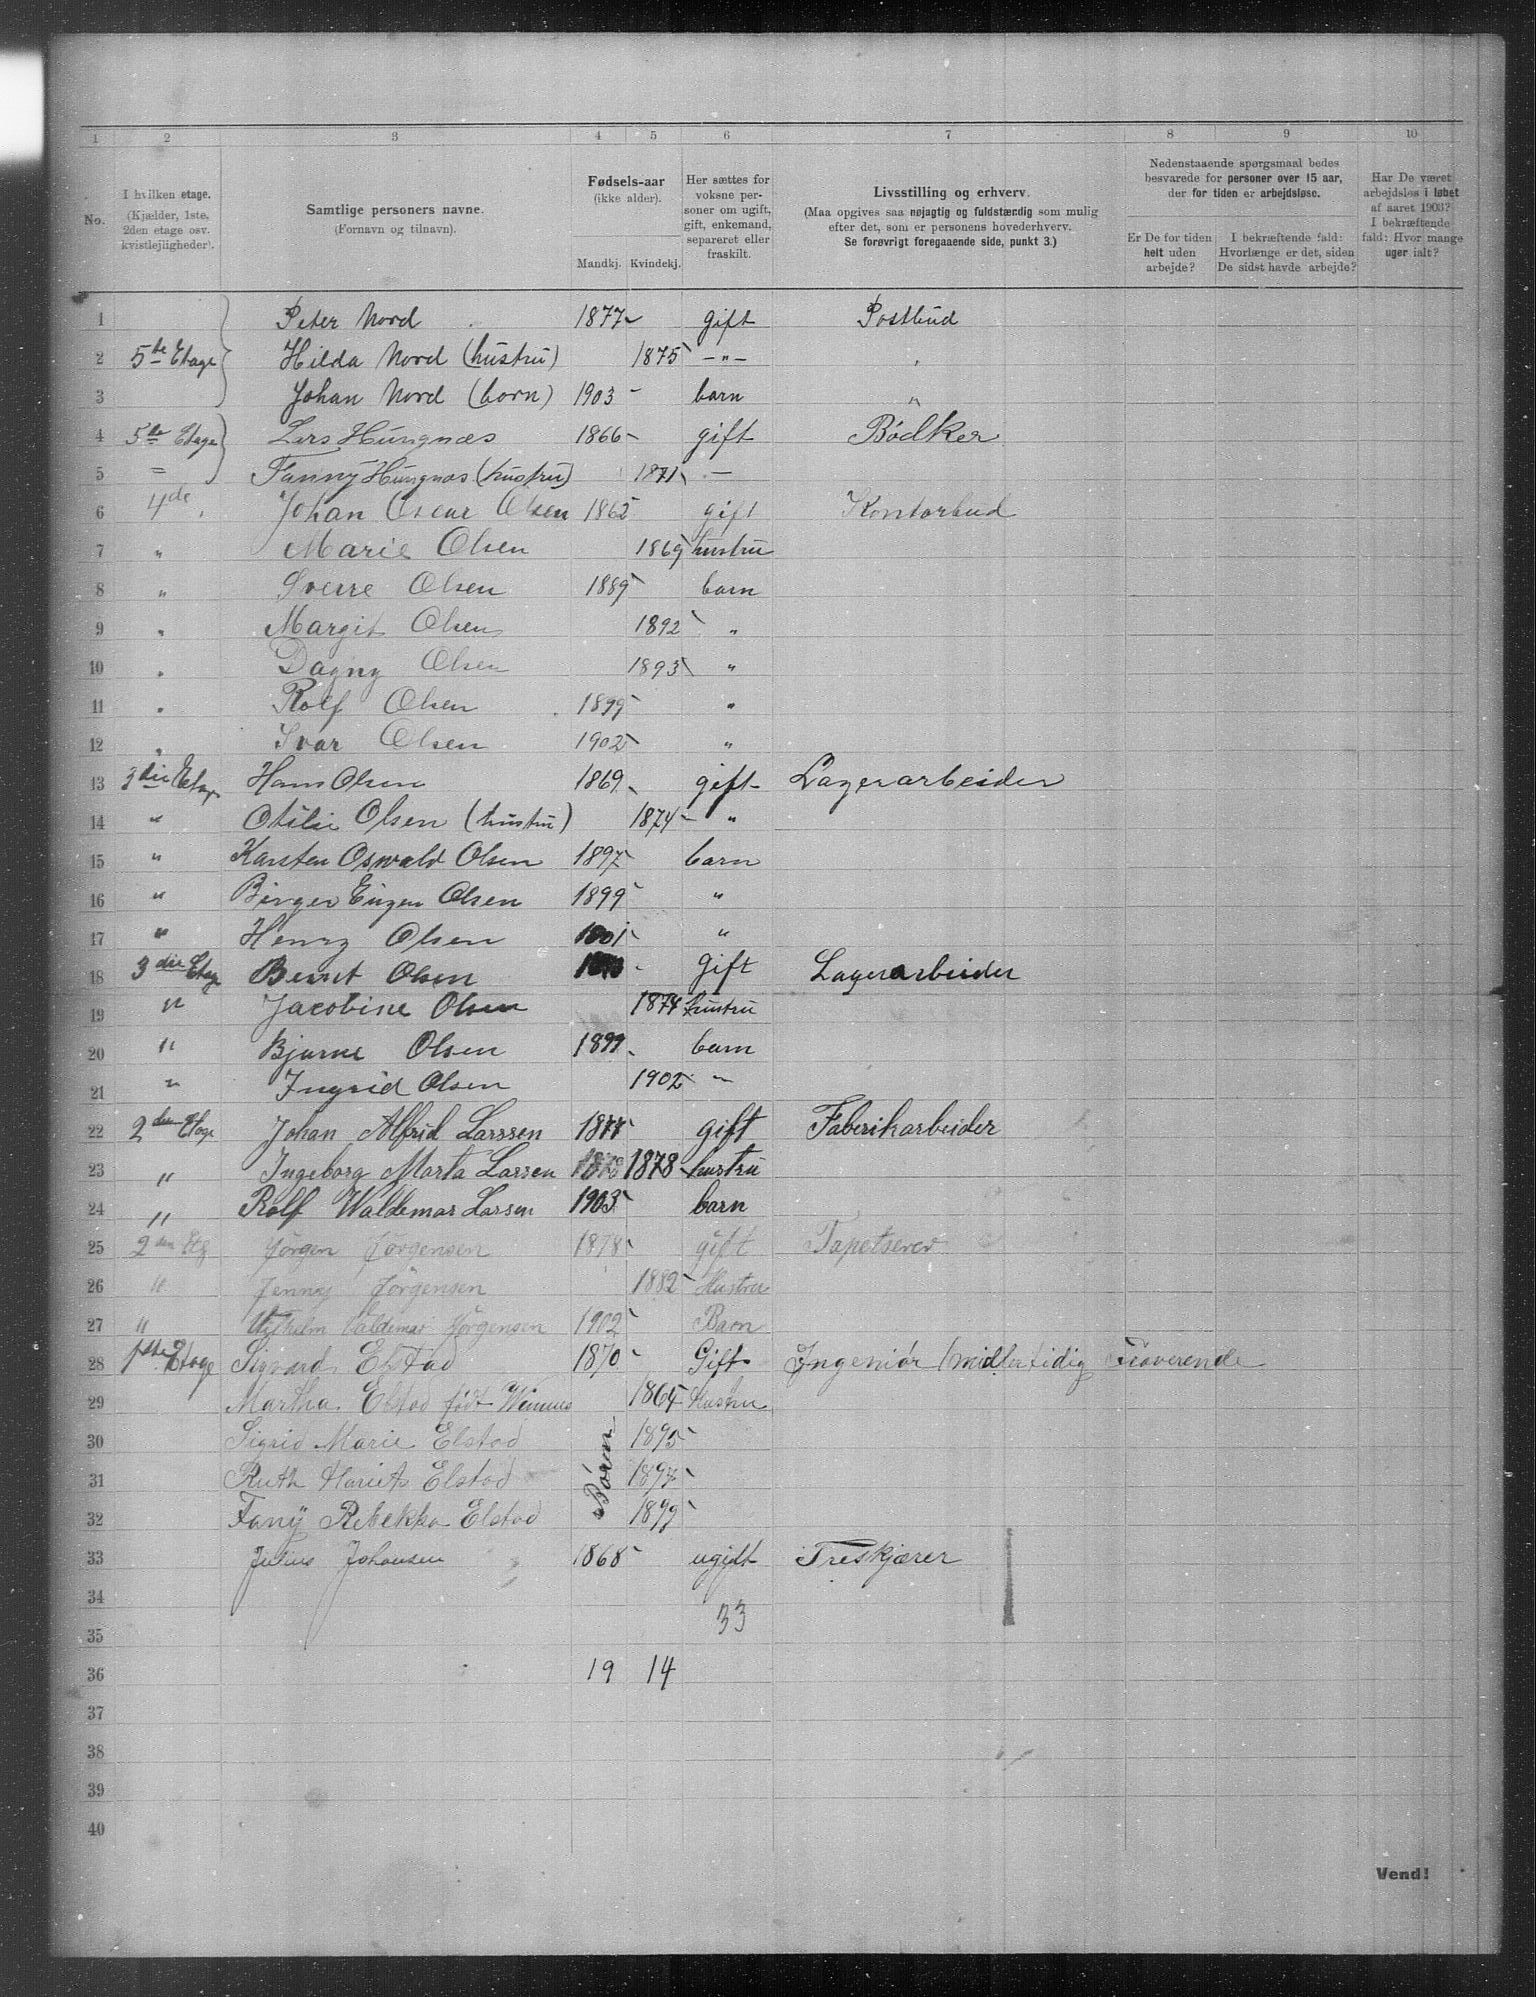 1 2 3 4 5 6 7 8 9 10
No.
I hvilken etage.
(Kjælder, 1ste,
2den etage osv.
kvistlejligheder).
Samtlige personers navne.
(Fornavn og tilnavn).
Fødsels-aar
(ikke alder).
Mandkj. Kvindekj.
Her sættes for
voksne per-
soner om ugift,
gift, enkemand,
separeret eller
fraskilt.
Livsstilling og erhverv.
(Maa opgives saa nøjagtig og fuldstændig som mulig
efter det, som er personens hovederhverv.
Se forøvrigt foregaaende side, punkt 3.)
Nedenstaaende spørgsmaal bedes
besvarede for personer over 15 aar,
der for tiden er arbejdsløse.
Er De for tiden
helt uden
arbejde?
I bekræftende fald:
Hvorlænge er det, siden
De sidst havde arbejde?
Har De været
arbejdsløs i løbet
af aaret 1903?
I bekræftende
fald: Hvor mange
uger ialt?
1 Peter Nord 1877 gift Postbud
2 5te Etage Hilda Nord (hustru) 1875 -"-
3 Johan Nord (born) 1903 barn "
4 5te Etage Lars Hungnæs 1866 gift Bödker
5 = Fanny Hungnæs (hustru) 1871 -
6 4de Johan Oscar Olsen 1862 gift Kontorbud
7 " Marie Olsen 1869 hustru
8 " Sverre Olsen 1889 barn
9 " Margit Olsen 1892 "
10 " Dagny Olsen 1893 "
11 " Rolf Olsen 1899 "
12 " Ivar Olsen 1902 "
13 3die Etage Hans Olsen 1869 gift Lagerarbeider
14 " Otilie Olsen (hustru) 1874 "
15 " Karsten Oswald Olsen 1897 barn
16 " Birger Eugen Olsen 1899 "
17 " Henry Olsen 1901 "
18 3die Etage Bernt Olsen gift Lagerarbeider
19 " Jacobine Olsen 1874 hustru
20 " Bjarne Olsen 1899 barn
21 " Ingrid Olsen 1902 "
22 2den Etage Johan Alfrid Larssen 1877 gift Faberikarbeider
23 " Ingeborg Marta Larsen 1878 1878 hustru
24 " Rolf Waldemar Larsen 1903 barn
25 2den Etg Jørgen Jørgensen 1878 gift Tapetserer
26 " Jenny Jørgensen 1882 Hustru
27 " Vilhelm Valdemar Jørgensen 1902 Barn
28 1ste Etage Sigvard Elstad 1870 Gift Ingeniør (midlertidig Fraverende
29 Martha Elstad født 1865 Hustru
30 Sigrid Marie Elstad Børen 1895
31 Ruth Hariet Elstad 1897
32 Fanÿ Rebekka Elstad 1899
33 Julius Johansen 1868 ugift Treskjærer
34
33
35
36 19 14
37
38
39
40
Vend!